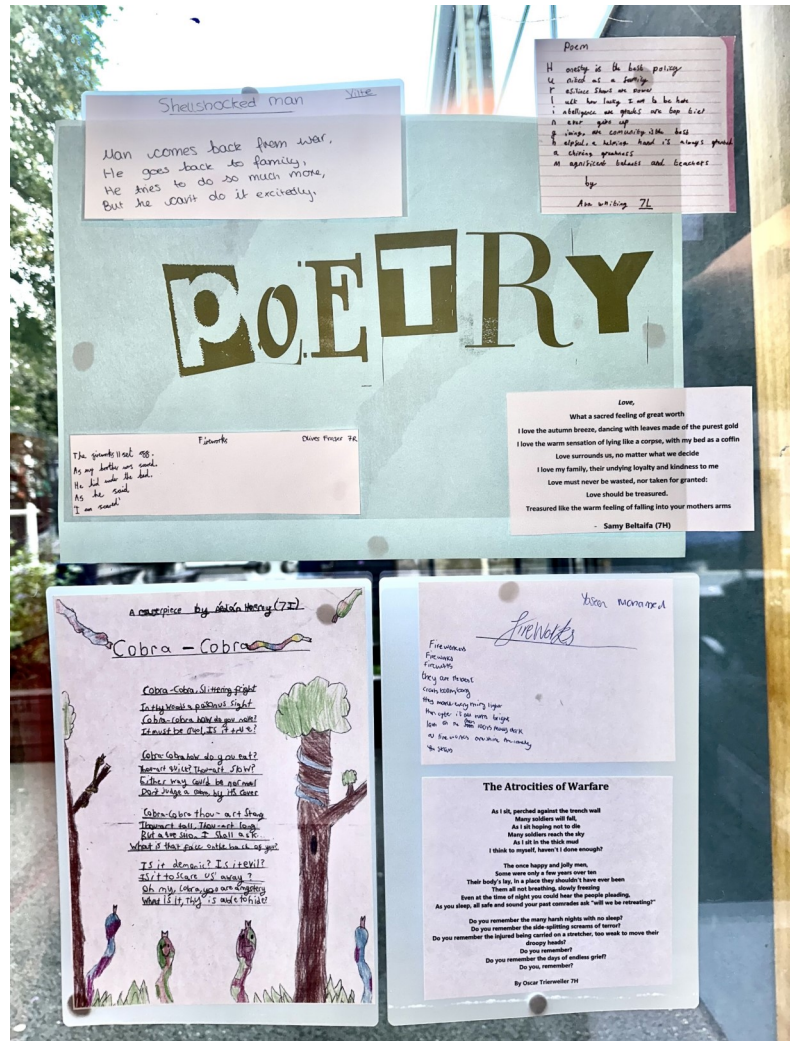 Shellshocked man
Man comes back from war,
He goes back to family,
He tries to do so much more,
But he can't do it excitedly.
Poem
Honesty is the best policy
united as a family
resiliance shows we never
intelligence our grades are top tier
never give up
joining, our comunity is the best
helpful, a helping hand is always
achiving greatness
magnificent behaits and teachers
by
7L
POETRY
Fireworks
Oliver Fraser 7R
The fireworks set off.
As my brother was scared.
He hid under the bed.
As he said
'I am scared'
Love,
What a sacred feeling of great worth
I love the autumn breeze, dancing with leaves made of the purest gold
I love the warm sensation of lying like a corpse, with my bed as a coffin
Love surrounds us, no matter what we decide
I love my family, their undying loyalty and kindness to me
Love must never be wasted, nor taken for granted:
Love should be treasured.
Treasured like the warm feeling of falling into your mothers arms
- Samy Beltaifa (7H)
A masterpiece by (7I)
Cobra - Cobra
Cobra-Cobra, Slittering fright
In thy woods a poisonus sight
Cobra-Cobra how do you mate?
It must be cruel, Is it true?
Cobra-Cobra how do you eat?
Thou-art quick? Thou-art Slow?
Either way could be normal
Don't Judge a cobra by its cover
Cobra-Cobra thou-art Strong
Thou-art tall, Thou-art long
But a question I shall ask
What is that face on the back of you?
Is it demonic? Is it evil?
Is it to scare us away?
Oh my, cobra, you are a mystery
What is it, Thy is able to hide!
Yaseen Mohamed
Fireworks
Fireworks
Fireworks
Fireworks
they are the best
crash boom bang
they make everything light
The Atrocities of Warfare
As I sit, perched against the trench wall
Many soldiers will fall,
As I sit hoping not to die
Many soldiers reach the sky
As I sit in the thick mud
I think to myself, haven't I done enough?
The once happy and jolly men,
Some were only a few years over ten
Their body's lay, in a place they shouldn't have ever been
Them all not breathing, slowly freezing
Even at the time of night you could hear the people pleading,
As you sleep, all safe and sound your past comrades ask "will we be retreating?"
Do you remember the many harsh nights with no sleep?
Do you remember the side-splitting screams of terror?
Do you remember the injured being carried on a stretcher, too weak to move their
droopy heads?
Do you remember?
Do you remember the days of endless grief?
Do you, remember?
By Oscar Trierweiler 7H